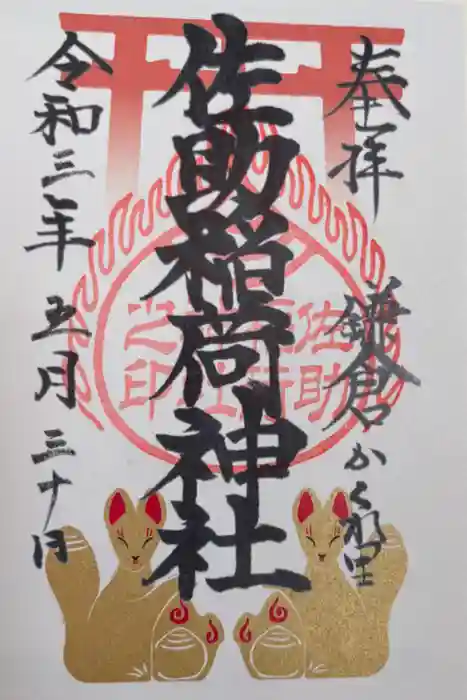 奉拝 鎌倉かくれ里
佐助稲荷神社
令和三年五月三十日
佐助稲荷神社之印